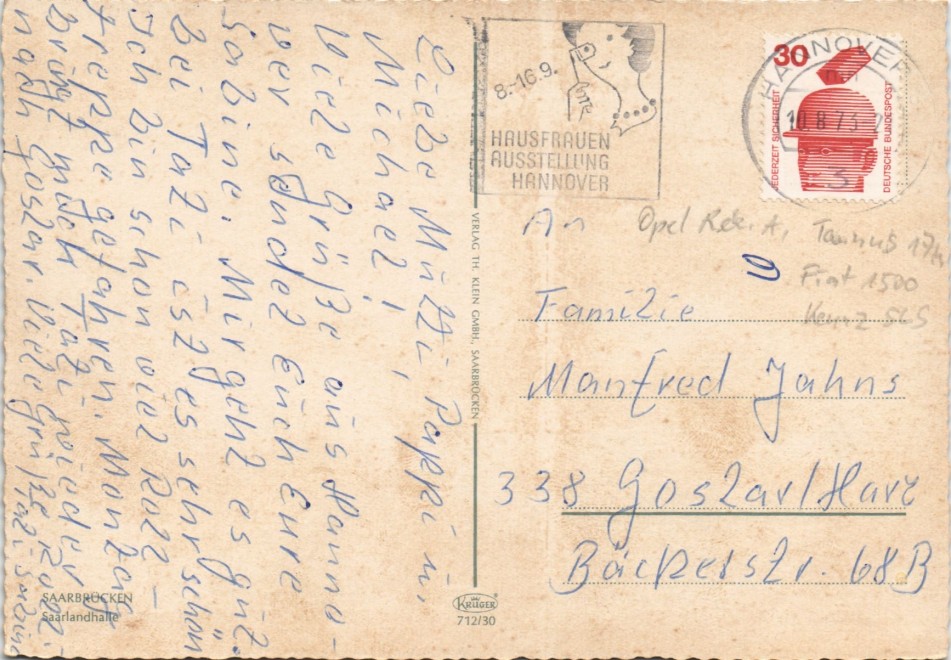 Liebe Mutti, Pappi u.
Michael!
Viele Grüße aus Hanno-
ver sendet Euch Eure
Sabine. Mir geht es gut.
Bei Tazi ist es sehr schön
Ich bin schon viel Roll-
treppe gefahren. Montag
bringt mich Tazi wieder
nach Goslar. Viele Grüße
8.-16.9.
HAUSFRAUEN
AUSSTELLUNG
HANNOVER
HANNOVER
10.8.73
30
JEDERZEIT SICHERHEIT
DEUTSCHE BUNDESPOST
An
Familie
Manfred Jahns
338 Goslar/Harz
Bäckerstr. 68B
Opel
Taunus 17m
Fiat 1500
VERLAG TH. KLEIN GMBH., SAARBRÜCKEN
SAARBRÜCKEN
Saarlandhalle
KRÜGER
712/30